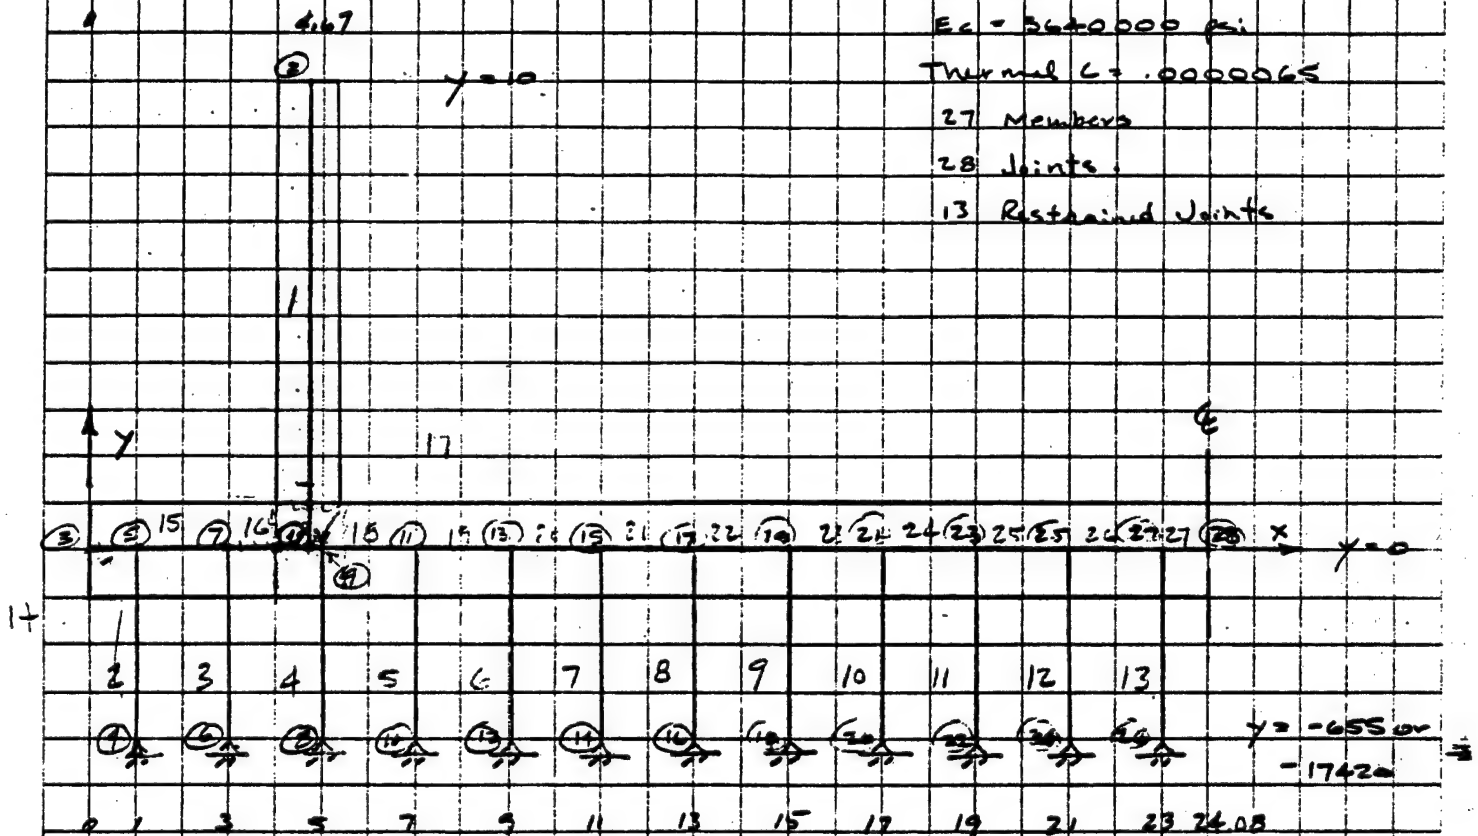 4.67
Ec = 3640000 psi
② y = 10
Thermal C = .0000065
27 Members
28 Joints.
13 Restrained Joints
1
℄
y
17
③ ⑤ 15 ⑦ 16 18 ⑪ 19 ⑬ 20 ⑮ 21 ⑰ 22 ⑲ 23 ㉑ 24 ㉓ 25 ㉕ 26 ㉗ 27 ㉘ x
y = 0
⑨
14
2 3 4 5 6 7 8 9 10 11 12 13
④ ⑥ ⑧ ⑩ ⑭ ⑯ ⑱ ⑳ ㉒ y = -655 or
-17420
0 1 3 5 7 9 11 13 15 17 19 21 23 24.08